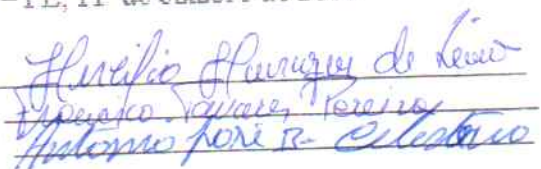 de
Hercílio Henrique de Leão
Francisco Tavares Pereira
Antonio José B. Celestino